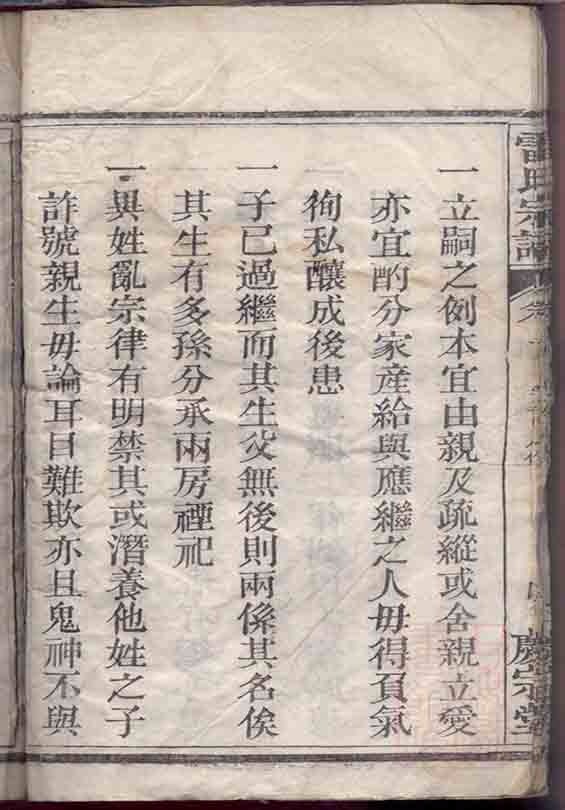 一立嗣之例本宜由親及疏縱或舍親立愛
亦宜酌分家產給與應繼之人毋得負氣
徇私釀成後患
一子已過繼而其生父無後則兩係其名俟
其生有多孫分承兩房禋祀
一異姓亂宗律有明禁其或潛養他姓之子
詐號親生毋論耳目難欺亦且鬼神不與
雷氏宗譜
慶宗堂